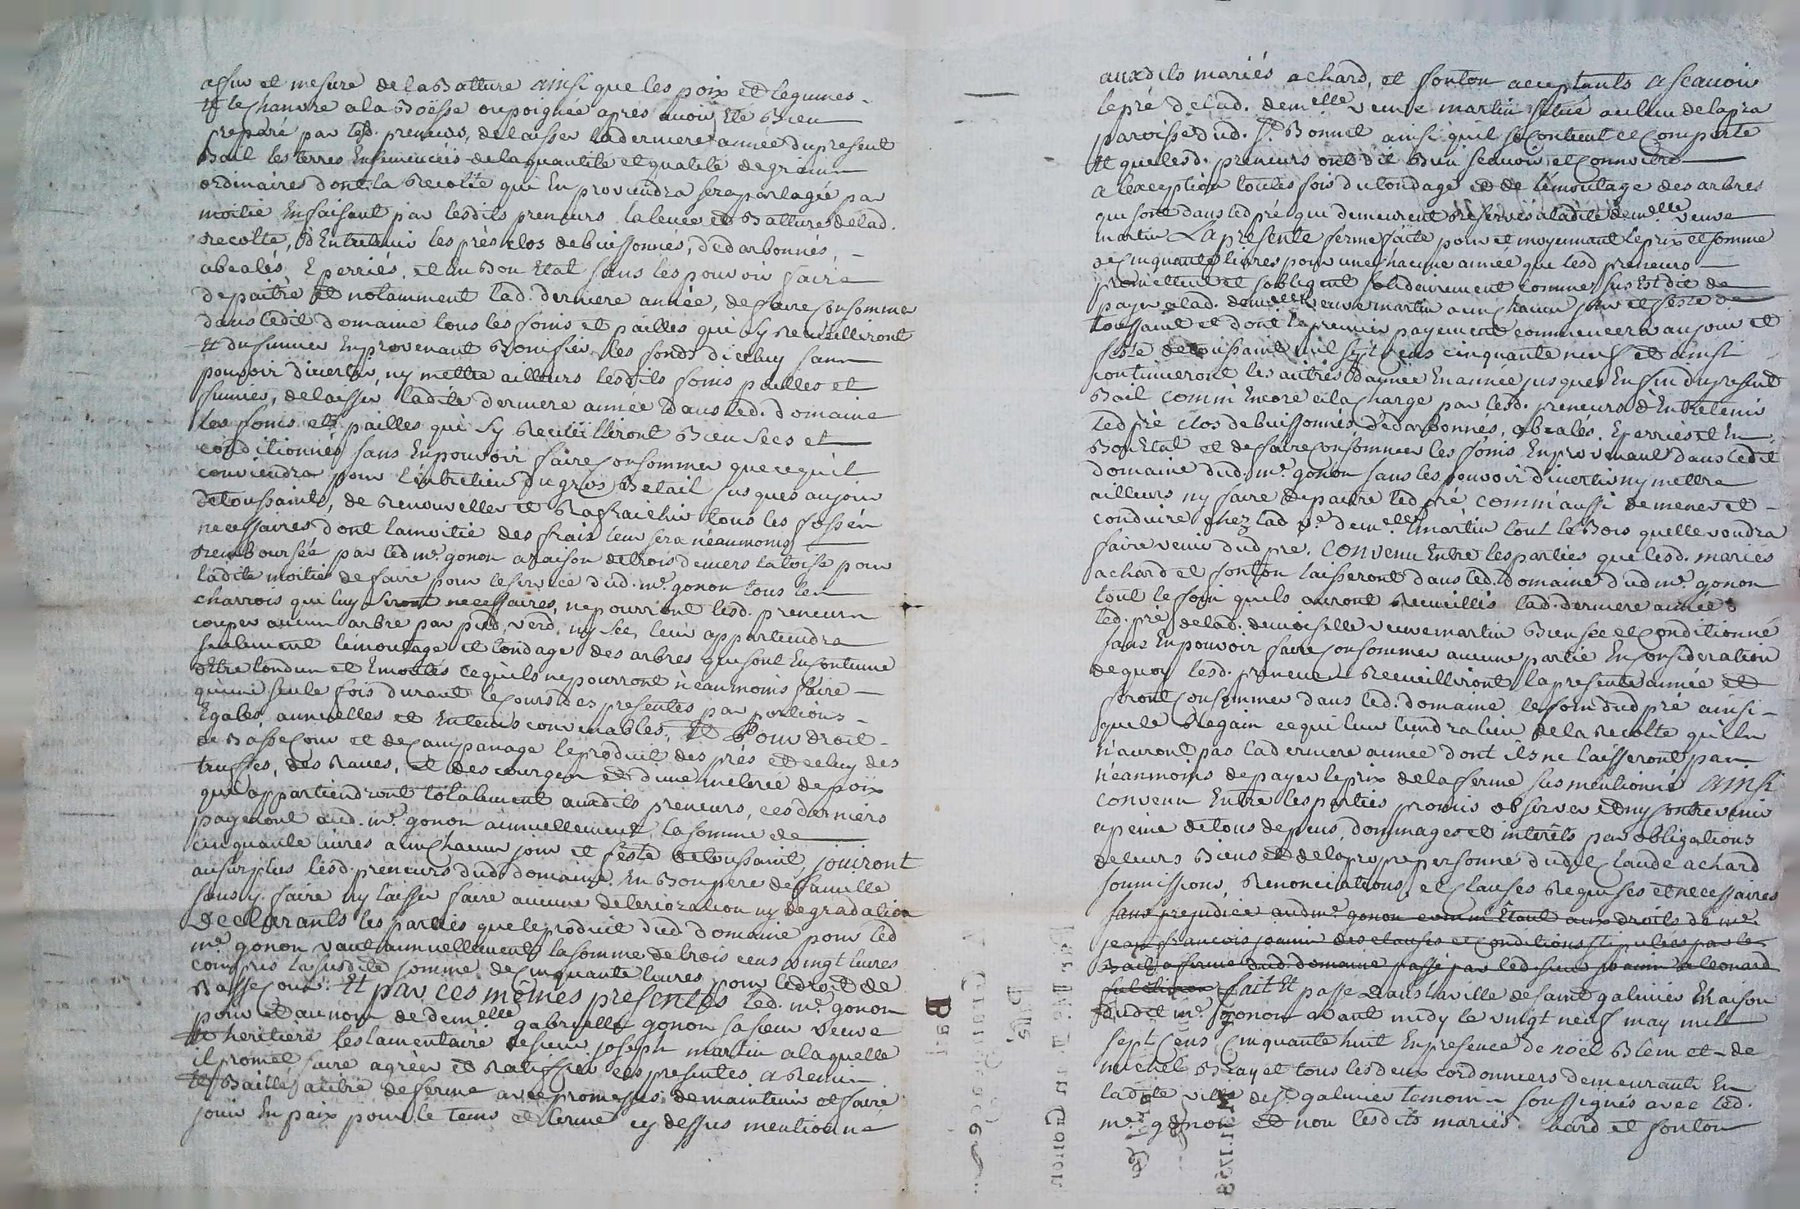 afur et mesure de la Batture ainsi que les poix et legumes
et le chanvre a la Boësse ou poignée après avoir Eté Bien
preparé par lesd. preneurs, de laisser lad derniere année du present
Bail les terres Ensemencéés de la quantité et qualité de grains
ordinaires dont la Recolte qui En proviendra sera partagée par
moitié En faisant par lesdits preneurs la levée et Batture de lad.
recolte, d'Entretenir les prés clos de buissonnés, d'edarbonnés,
abealés, Eperriés, et En Bon Etat sans les pouvoir faire
depaitre et notamment lad. derniere année, de faire consommer
dans ledit domaine tous les foins et pailles qui sy Recueilleront
Et du fumier En provenant Bonifier les fonds d'icelluy sans
pouvoir divertir, ny mettre ailleurs lesdits foins pailles et
fumier, de laisser ladite derniere année dans led. domaine
les foins et pailles qui sy Recuëilliront Bien secs et
conditionnés sans En pouvoir faire consommer que ce qu'il
conviendra pour l'entretien du gros Betail jusques au jour
de toussaint, de Renouveller et Rafraichir tous les fossés
necessaires dont la moitié des frais leur sera neanmoins
remboursée par led me. gonon a raison de trois deniers la toise pour
ladite moitié de faire pour le service dud. me. gonon tous les
charrois qui luy seront necessaires, ne pourront lesd. preneurs
couper aucun arbre par pied, verd, ny sec, leur appartiendra
seulement l'émoutage et tondage des arbres qui sont En coutume
d'Etre tondus et Emoutés ce qu'ils ne pourront néanmoins faire
qu'une seule fois durant le cours des presentes par portions
Egales, annuelles et En tems convenables, Et Pour droit
de Basse Cour et de Campanage le produit des prés et celuy des
truffes, des Raves, et des courges et d'une meterée de poix
qui appartiendront totalement auxdits preneurs, ces derniers
payeront aud. me. gonon annuellement la somme de
cinquante livres a un chacun jour et feste de toussaint jouiront
au surplus lesd. preneurs dud domaine En Bon pere de famille
sans y faire ny laisser faire aucune deterioration ny degradation
Declarants les parties que le produit dud domaine pour led
me. gonon vaut annuellement la somme de trois cens vingt livres
compris la susdite somme de cinquante livres pour led droit de
Basse Cour. Et par ces mêmes presentes led. me. gonon
pour et au nom de demelle gabrielle gonon sa sœur veuve
et heritiere testamentaire de sieur joseph martin a laquelle
il promet faire agréer et Ratiffier ces presentes a Remis
et Baillé a titre de ferme avec promesses de maintenir et faire
jouir En paix pour le tems et terme cy dessus mentionné
auxdits mariés achard, et fonton acceptants ascavoir
le pré de lad. demelle veuve martin situé au lieu de lapra
paroisse dud. St. Bonnet ainsi quil se contient et comporte
et que lesd. preneurs ont dit Bien scavoir et connoitre
a l'exception toutes fois du tondage et de l'émoutage des arbres
qui sont dans led pré qui demeurent Reservés a ladite demelle veuve
martin La presente ferme faitte pour et moyennant le prix et somme
de cinquante livres pour une chacune année que lesd preneurs
promettent et sobligent solidairement comme sus Est dit de
payer a lad. demelle veuve martin a un chacun jour et feste de
toussaint et dont le premier payement commencera au jour et
feste de toussaint mil sept cens cinquante neuf et ainsi
continueront les autres d'année En année jusques En fin du present
Bail comm'Encore a la charge par lesd. preneurs d'Entretenir
led pré clos de buissonnés, d'edarbonnés, abealés, Eperriés et En
Bon Etat et de faire consommer les foins En provenant dans ledit
domaine dud. me. gonon sans les pouvoir divertir ny mettre
ailleurs ny faire depaitre led pré comm'aussi de mener et
conduire chez lad ve. demelle martin tout le Bois quelle voudra
faire venir dud pré. convenu Entre les parties que lesd. mariés
achard et fonton laisseront dans led. domaine dud me. gonon
tout le foin quils auront Recueillis lad. derniere année
led. pré de lad. demoiselle veuve martin Bien sec et conditionné
sans En pouvoir faire consommer aucune partie En consideration
de quoy lesd. preneurs Recueilleront la presente année et
feront consommer dans led. domaine le foin dud pré ainsi
que le Regain ce qui leur tiendra lieu de la Recolte qu'ils
n'auront pas lad derniere année dont ils ne laisseront pas
néanmoins de payer le prix de la ferme sus mentionné ainsi
convenu Entre les parties promis observer et ny contrevenir
a peine de tous depens, dommages et interêts par obligations
de leurs Biens et de la propre personne dudit Claude achard
soumissions, Renonciations, et Clauses Requises et necessaires
sans prejudice aud me. gonon comme Etant aux droits de me.
jean francois joanin des clauses et conditions stipulées par le
Bail a ferme dud. domaine passé par led. sieur joanin a leonard
fait Et passé dans la ville de saint galmier maison
dudit me. gonon avant midy le vingt neuf may mil
sept cens Cinquante huit En presence de noël Blein et de
michel Brayet tous les deux cordonniers demeurants En
ladite ville de St galmier temoins soussignés avec led.
me. gonon et non lesdits mariés hard et fonton
Bail